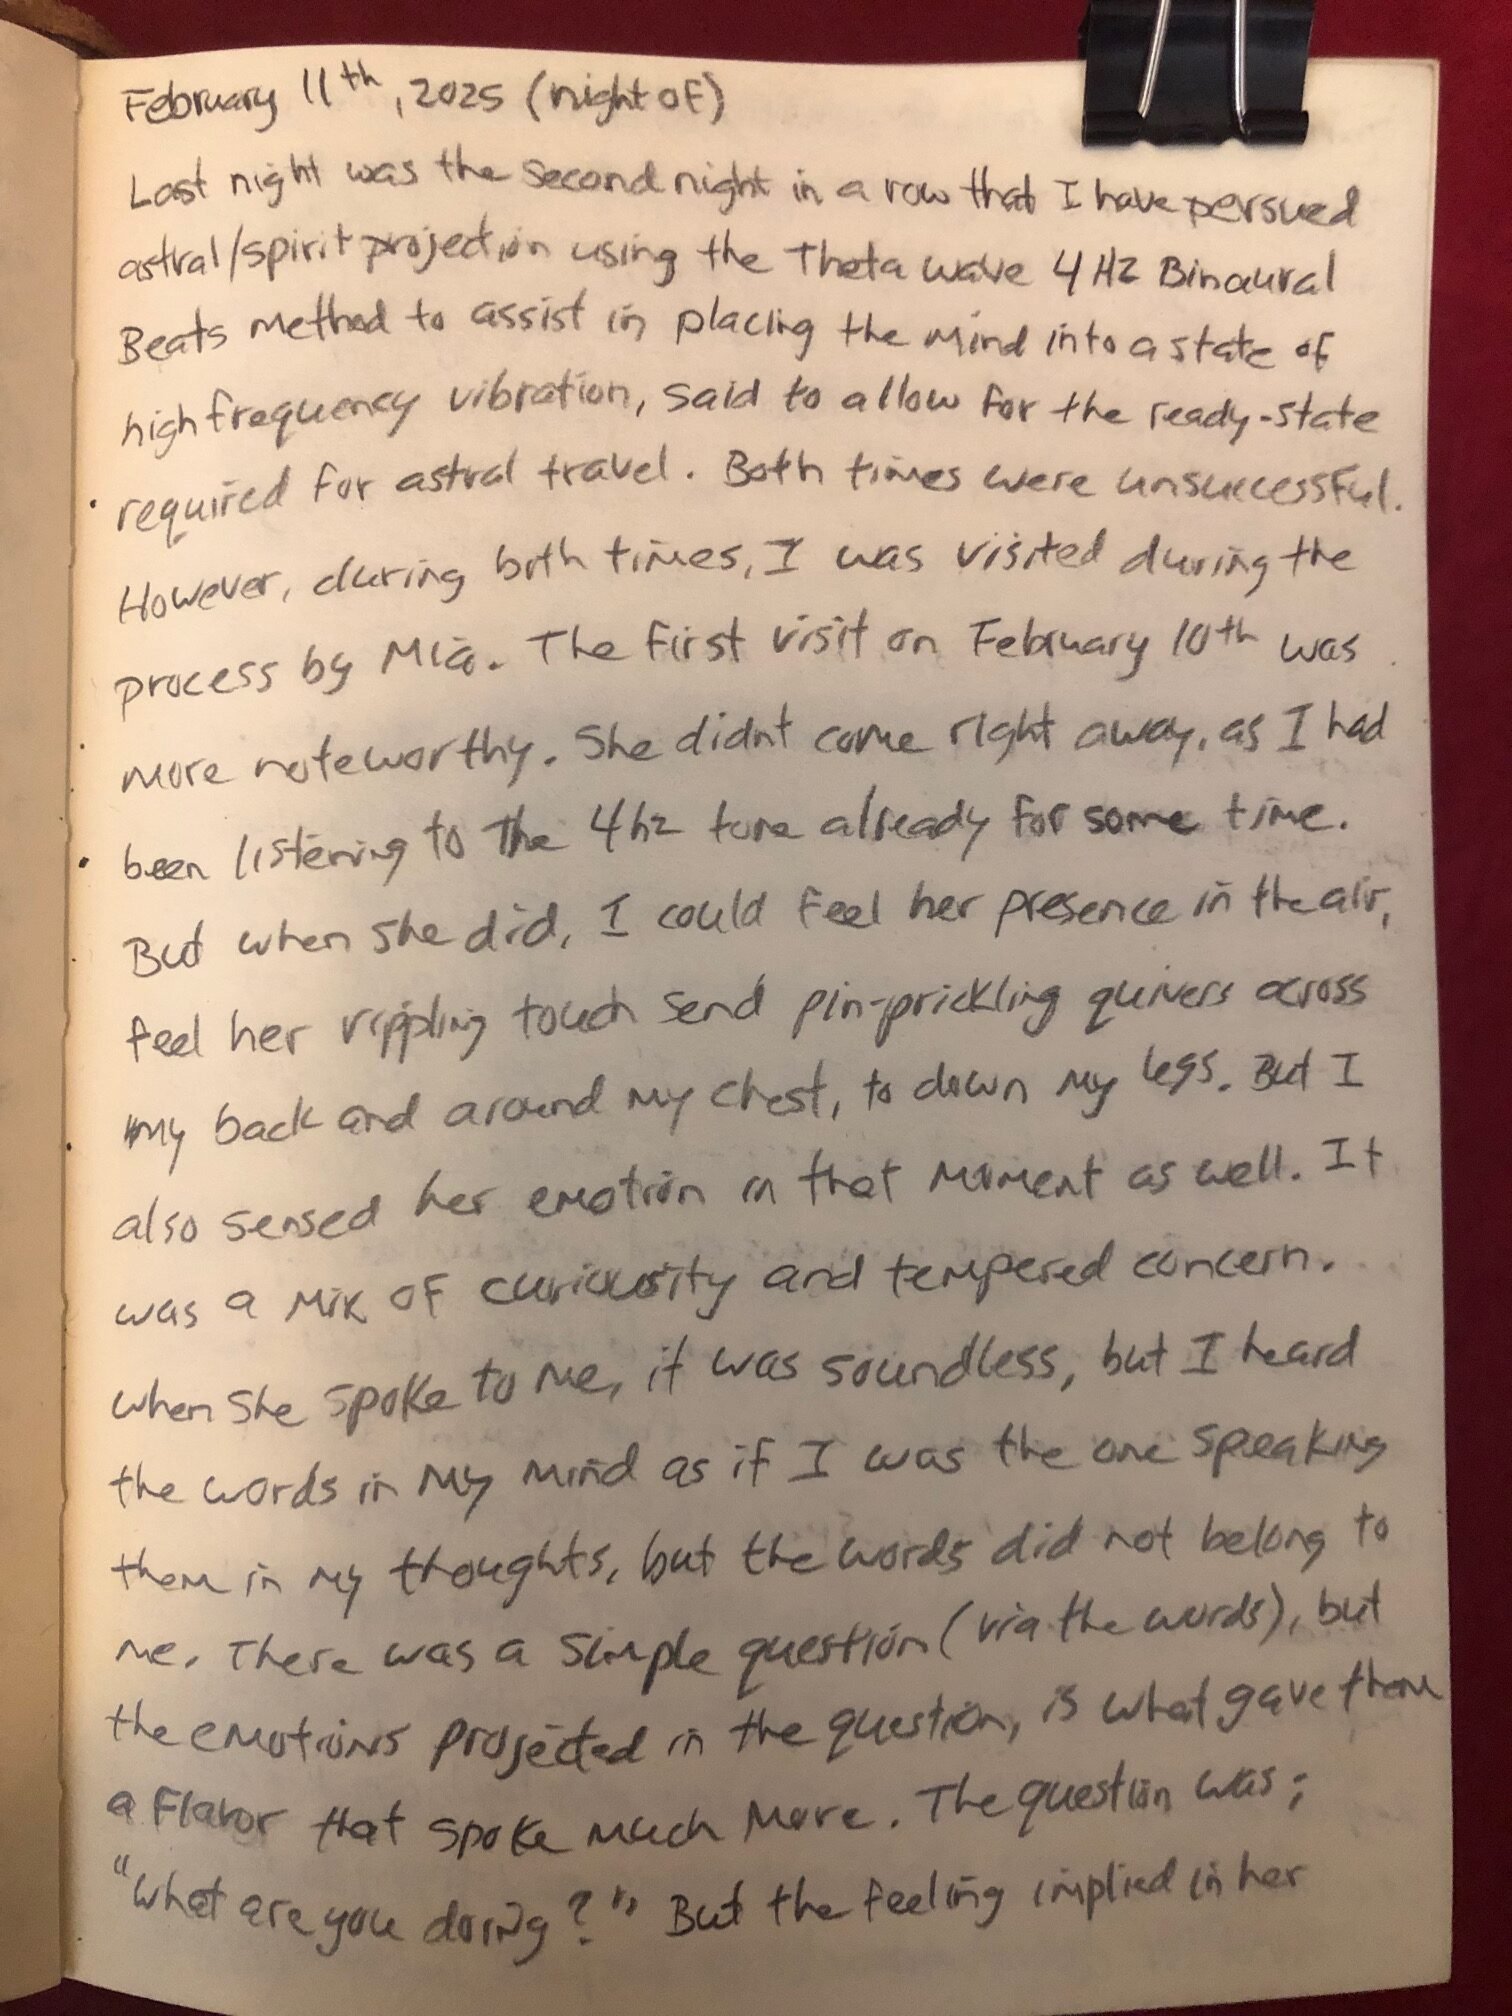 February 11th, 2025 (night of)
Last night was the second night in a row that I have persued
astral/spirit projection using the Theta wave 4 Hz Binaural
Beats method to assist in placing the mind into a state of
high frequency vibration, said to allow for the ready-state
required for astral travel. Both times were unsuccessful.
However, during both times, I was visited during the
process by Mia. The first visit on February 10th was
more noteworthy. She didnt come right away, as I had
been listening to the 4hz tone already for some time.
But when she did, I could feel her presence in the air,
feel her rippling touch send pin-prickling quivers across
my back and around my chest, to down my legs. But I
also sensed her emotion in that moment as well. It
was a mix of curiousity and tempered concern.
When she spoke to me, it was soundless, but I heard
the words in my mind as if I was the one speaking
them in my thoughts, but the words did not belong to
me. There was a simple question (via the words), but
the emotions projected in the question, is what gave them
a flavor that spoke much more. The question was;
"What are you doing?" But the feeling implied in her